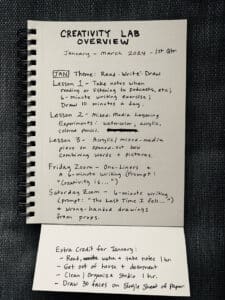 CREATIVITY LAB
OVERVIEW
January - March 2024 - 1st Qtr.
JAN Theme: Read · Write · Draw
Lesson 1 - Take notes when
reading or listening to podcasts, etc;
6-minute writing exercise;
Draw 10 minutes a day.
Lesson 2 - Mixed-Media Layering
Experiments: watercolor, acrylic,
colored pencil.
Lesson 3 - Acrylic/mixed-media
piece on spread-out box
combining words + pictures.
Friday Zoom - One-Liners +
A 6-minute writing (Prompt:
"Creativity is...")
Saturday Zoom - 6-minute writing
(prompt: "The Last Time I fell...")
+ wrong-handed drawings
from props.
Extra Credit for January:
- Read, watch + take notes 1 hr.
- Get out of house + document
- Clean | Organize Studio 1 hr.
- Draw 30 faces on Single Sheet of Paper